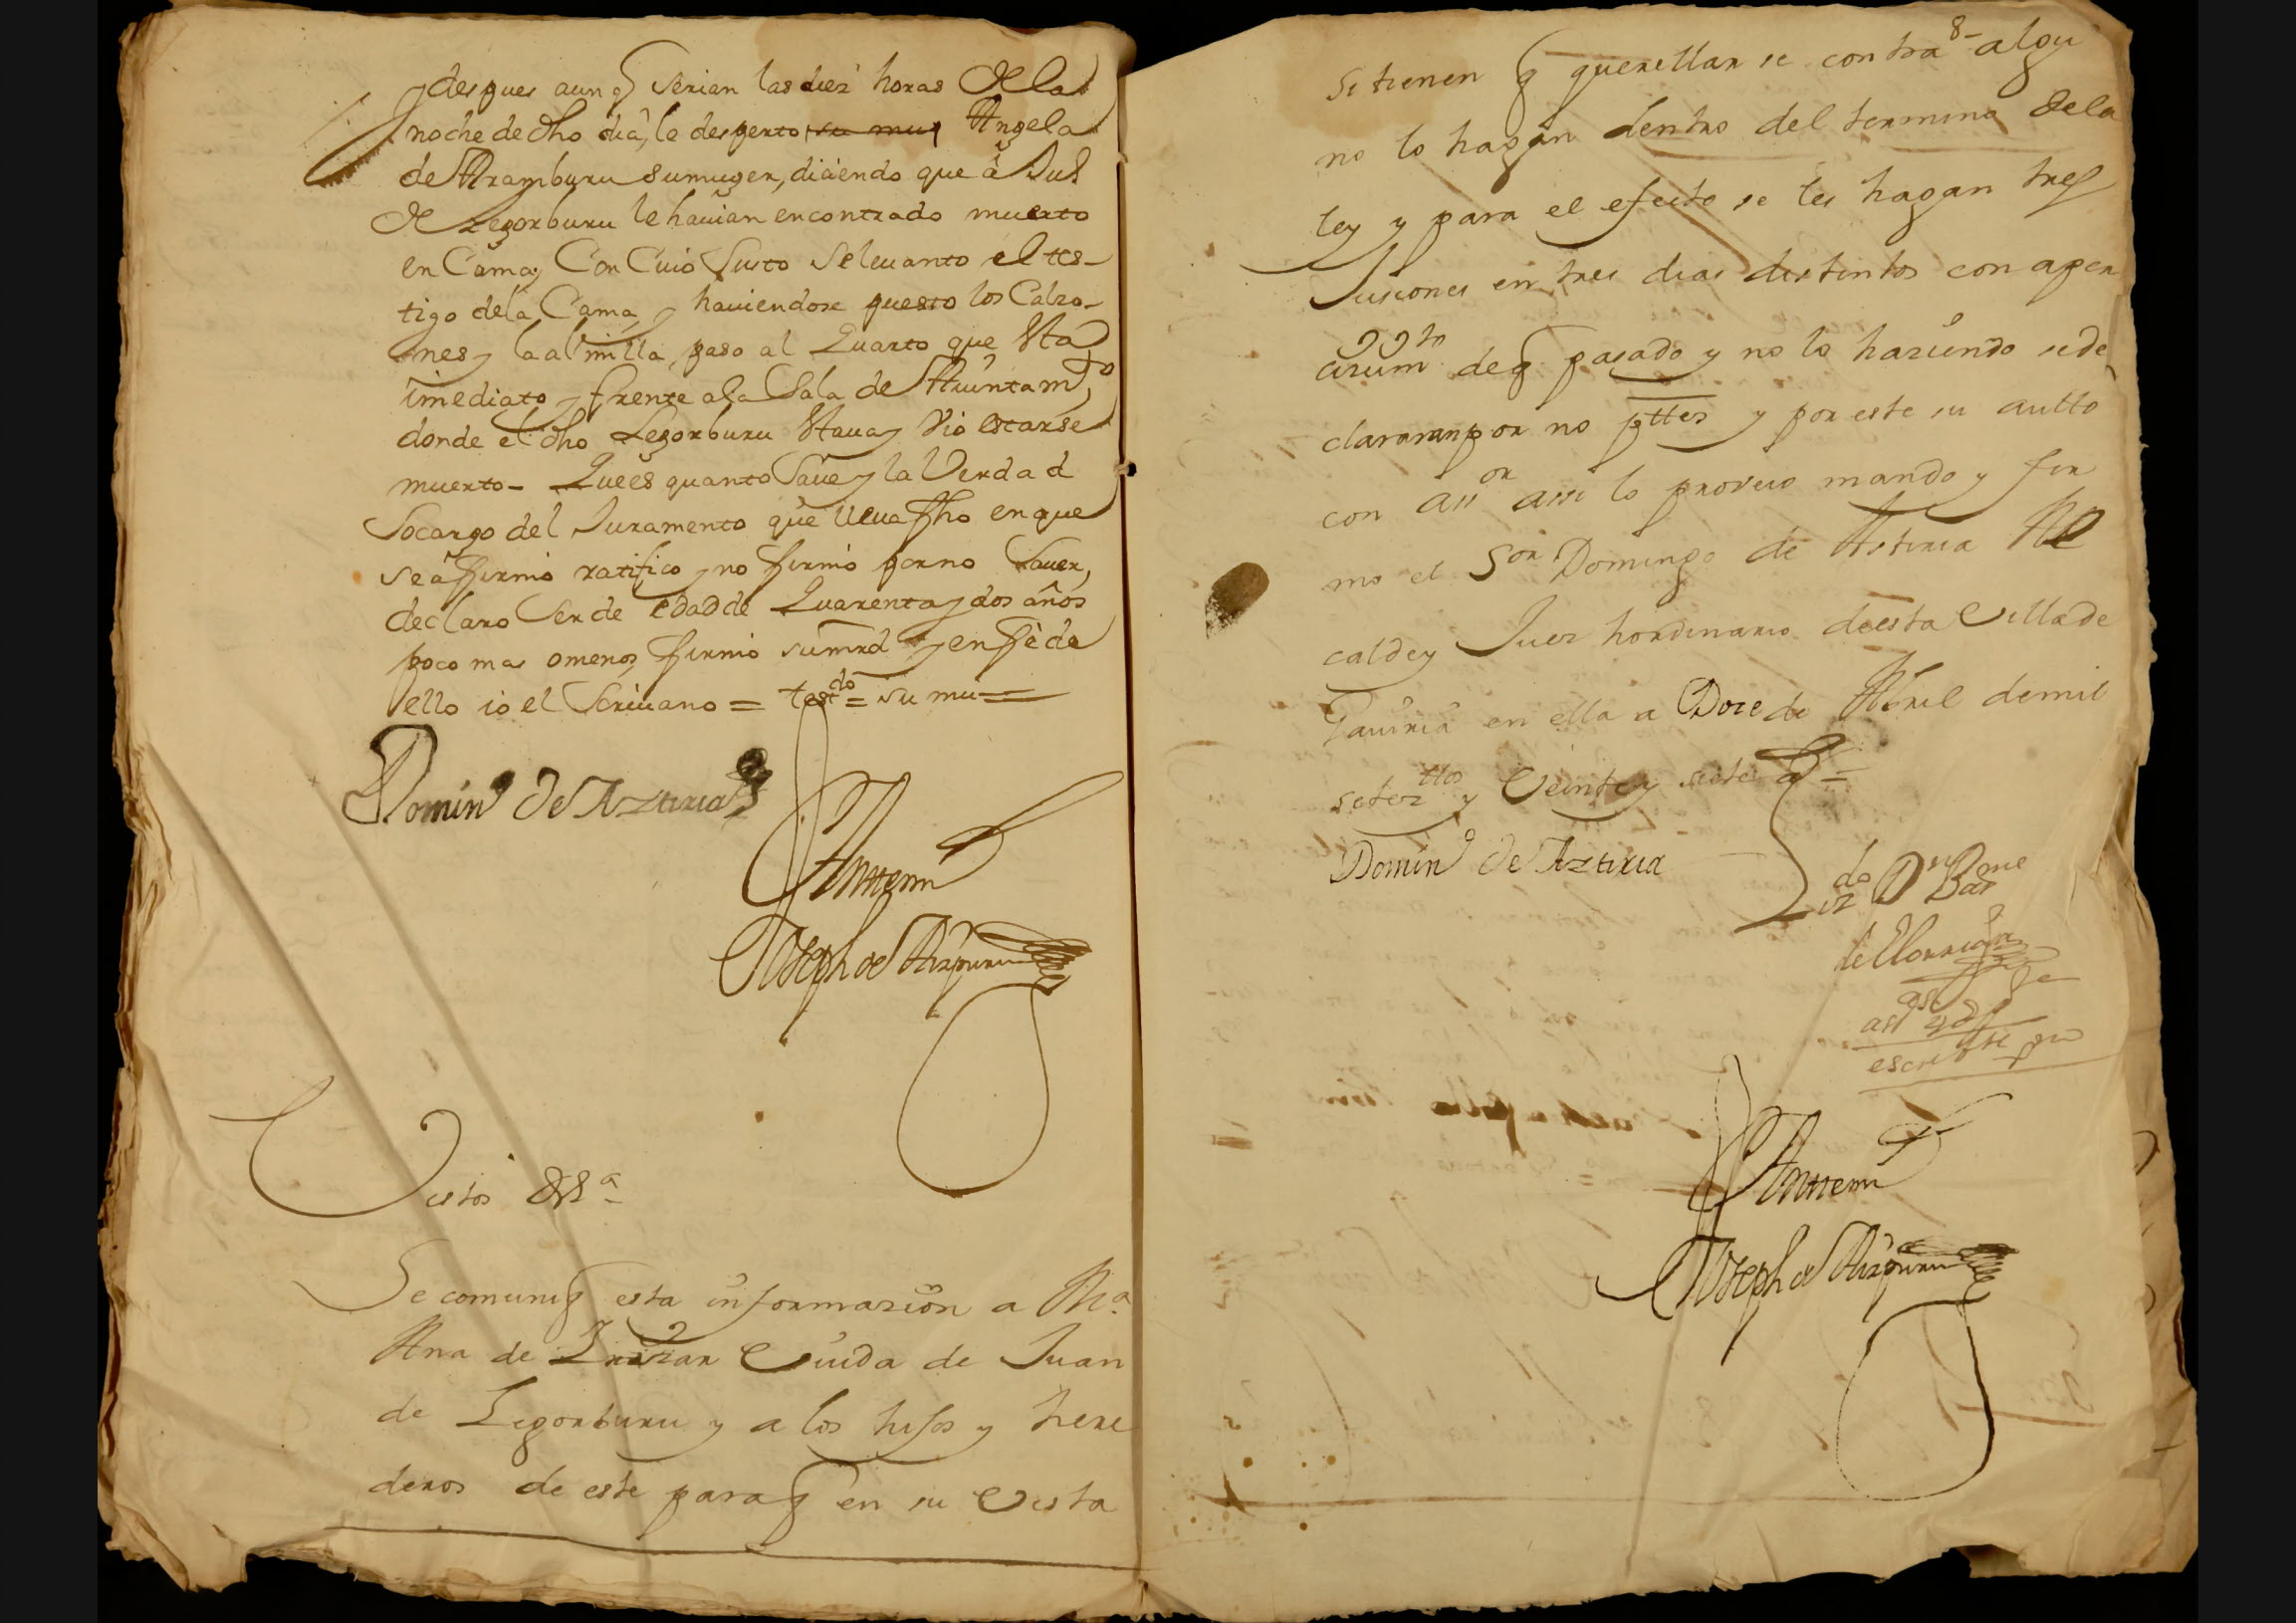 despues aunq serian las diez horas de la
noche de dho dia, le desperto su mug Angela
de Aramburu su muger, diciendo que â Juº
de Legorburu le havian encontrado muerto
en Cama, y Con Cuio Susto se levanto el tes-
tigo de la Cama, y haviendose puesto los Calzo-
nes y la almilla, paso al Quarto que Sta
imediato y frente a la Sala de Aiuntamto
donde el dho Legorburu Stava y vio estarse
muerto - Que es quanto Save y la Verdad
Socargo del Juramento que lleva fho en que
se afirmó ratifico y no firmó por no Saver,
declaro Ser de edad de Quarenta y dos años
poco mas o menos, firmó su mrd y en fè de
ello io el Scrivano = testdo = su mu =
Domino de Aztiria
Antemi
Joseph de Aizpuru
Vistos &ª
Se comuniq esta informazion a Mª
Ana de Irizar Viuda de Juan
de Legorburu y a los hijos y here
deros de este para q en su Vista
8-
si tienen q querellar se contra algu
no lo hagan dentro del termino de la
ley y para el efecto se les hagan tres
lusiones en tres dias distintos con aper
civimto de q pasado y no lo haziendo se de
clararan por no pttes y por este su autto
con assor assi lo proveio mando y fir
mo el Sor Domingo de Astiria Al
calde y Juez hordinario de esta Villa de
Gaviria en ella a Doze de Abril de mil
setezttos y Veinte y siete =
Domino de Aztiria
Lizdo Dn Barme
de Elorriaga
escribte
Antemi
Joseph de Aizpuru